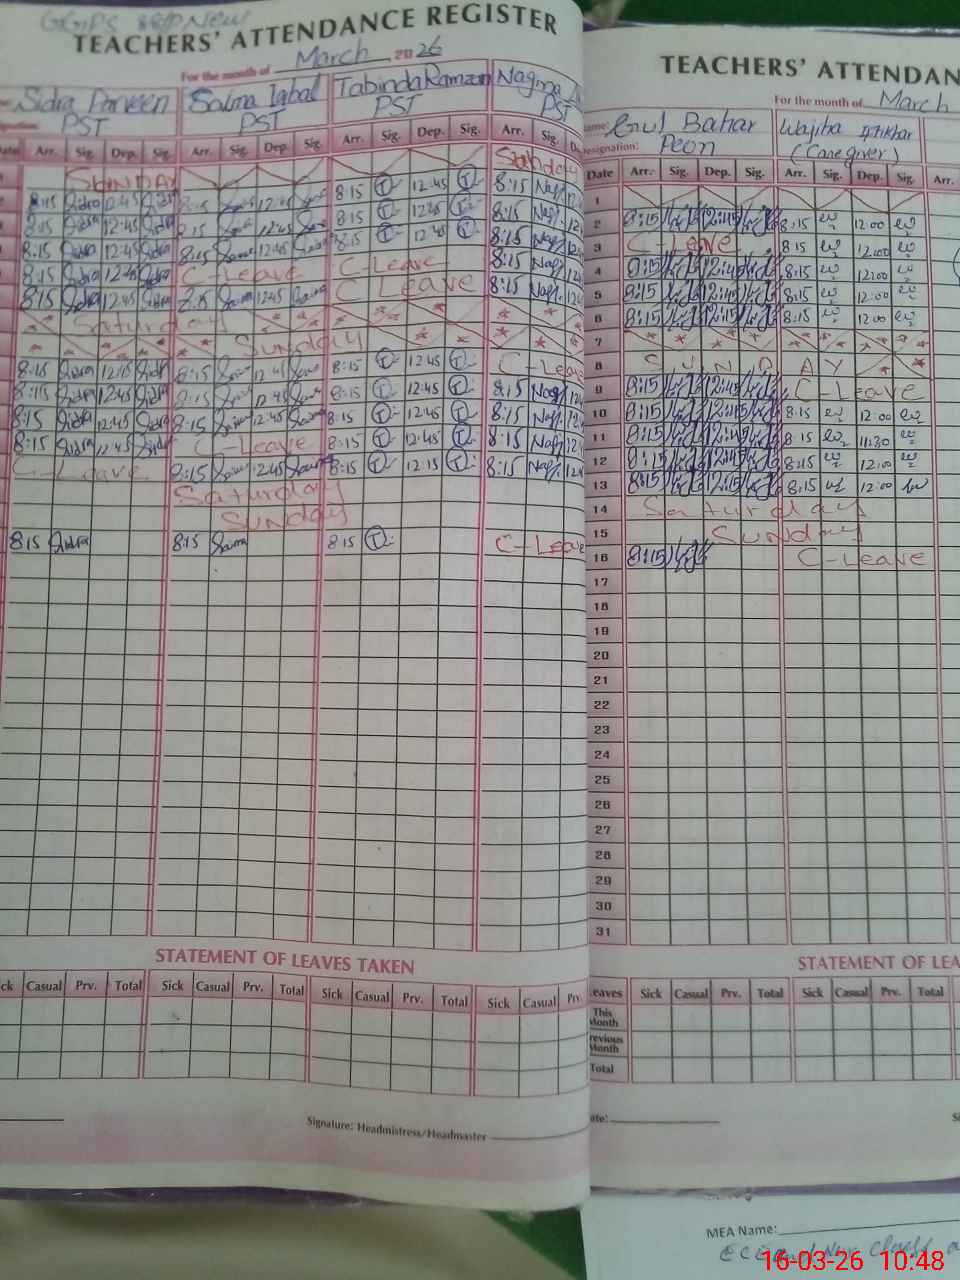 GGPS
TEACHERS' ATTENDANCE REGISTER
For the month of March 2026
Sidra Parveen Saima Iqbal Tabinda Ramzan Nagma
PST PST PST PST
Date Arr. Sig. Dep. Sig. Arr. Sig. Dep. Sig. Arr. Sig. Dep. Sig. Arr. Sig.
SUNDAY Sunday
8:15 Sidra 12:45 Sidra 8:15 12:45 8:15 T 12:45 T 8:15 Nag
8:15 Sidra 12:45 Sidra 8:15 12:45 8:15 T 12:45 T 8:15 Nag
8:15 Sidra 12:45 Sidra 8:15 12:45 8:15 T 12:45 T 8:15 Nag
8:15 Sidra 12:45 Sidra C-Leave C-Leave 8:15 Nag
8:15 Sidra 12:45 Sidra 8:15 Saima 12:45 Saima C Leave 8:15 Nag
Saturday
Sunday
8:15 Sidra 12:45 Sidra 8:15 12:45 8:15 T 12:45 T C-Leave
8:15 Sidra 12:45 Sidra 8:15 12:45 8:15 T 12:45 T 8:15 Nag
8:15 Sidra 12:45 Sidra 8:15 12:45 8:15 T 12:45 T 8:15 Nag
8:15 Sidra 12:45 Sidra C-Leave 8:15 T 12:45 T 8:15 Nag
C-Leave 8:15 12:45 8:15 T 12:15 T 8:15 Nag
Saturday
Sunday
8:15 Sidra 8:15 Saima 8:15 T C-Leave
STATEMENT OF LEAVES TAKEN
Sick Casual Prv. Total Sick Casual Prv. Total Sick Casual Prv. Total Sick Casual
Signature: Headmistress/Headmaster
TEACHERS' ATTENDAN
For the month of March
Name: Gul Bahar Wajiha Iftikhar
Designation: Peon (Caregiver)
Date Arr. Sig. Dep. Sig. Arr. Sig. Dep. Sig. Arr.
1
2 8:15 12:45 8:15 12:00
3 C-Leave 8:15 12:00
4 8:15 12:45 8:15 12:00
5 8:15 12:45 8:15 12:00
6 8:15 12:45 8:15 12:00
7
8 SUNDAY
9 8:15 12:45 C-Leave
10 8:15 12:45 8:15 12:00
11 8:15 12:45 8:15 11:30
12 8:15 12:45 8:15 12:00
13 8:15 12:45 8:15 12:00
14 Saturday
15 Sunday
16 8:15 C-Leave
17
18
19
20
21
22
23
24
25
26
27
28
29
30
31
STATEMENT OF LEA
Leaves Sick Casual Prv. Total Sick Casual Prv. Total
This Month
Previous Month
Total
Date:
MEA Name:
16-03-26 10:48